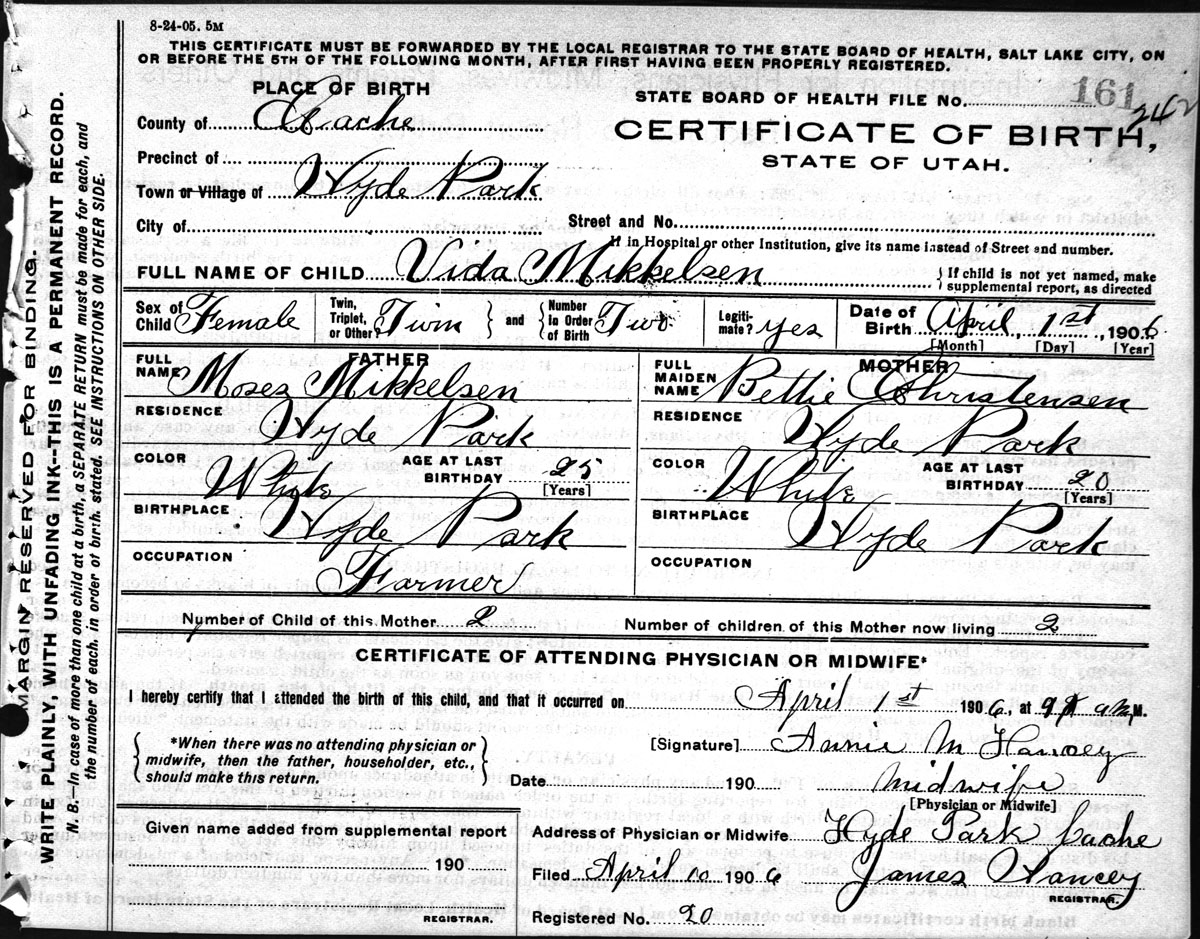 8-24-05. 5M
THIS CERTIFICATE MUST BE FORWARDED BY THE LOCAL REGISTRAR TO THE STATE BOARD OF HEALTH, SALT LAKE CITY, ON
OR BEFORE THE 5TH OF THE FOLLOWING MONTH, AFTER FIRST HAVING BEEN PROPERLY REGISTERED.
PLACE OF BIRTH
STATE BOARD OF HEALTH FILE NO. 161
242
County of Cache
CERTIFICATE OF BIRTH,
STATE OF UTAH.
Precinct of
Town or Village of Hyde Park
City of Street and No.
If in Hospital or other Institution, give its name instead of Street and number.
FULL NAME OF CHILD Vida Mikkelsen } If child is not yet named, make supplemental report, as directed
Sex of Child Female Twin, Triplet, or Other? Twin } and { Number In Order of Birth Two Legitimate? yes Date of Birth April, 1st, 1906
[Month] [Day] [Year]
FATHER
FULL NAME Moses Mikkelsen
RESIDENCE
Hyde Park
COLOR White AGE AT LAST BIRTHDAY 25
[Years]
BIRTHPLACE
Hyde Park
OCCUPATION
Farmer
MOTHER
FULL MAIDEN NAME Bettie Christensen
RESIDENCE
Hyde Park
COLOR White AGE AT LAST BIRTHDAY 20
[Years]
BIRTHPLACE
Hyde Park
OCCUPATION
Number of Child of this Mother 2 Number of children of this Mother now living 2
CERTIFICATE OF ATTENDING PHYSICIAN OR MIDWIFE*
I hereby certify that I attended the birth of this child, and that it occurred on April 1st 1906, at 9 a M.
{ *When there was no attending physician or midwife, then the father, householder, etc., should make this return. }
[Signature] Annie M Hancey
Date 190 midwife
[Physician or Midwife]
Given name added from supplemental report
190
REGISTRAR.
Address of Physician or Midwife Hyde Park Cache
Filed April 10 1906 James Hancey
REGISTRAR.
Registered No. 20
MARGIN RESERVED FOR BINDING.
WRITE PLAINLY, WITH UNFADING INK--THIS IS A PERMANENT RECORD.
N. B.—In case of more than one child at a birth, a SEPARATE RETURN must be made for each, and
the number of each, in order of birth, stated. SEE INSTRUCTIONS ON OTHER SIDE.